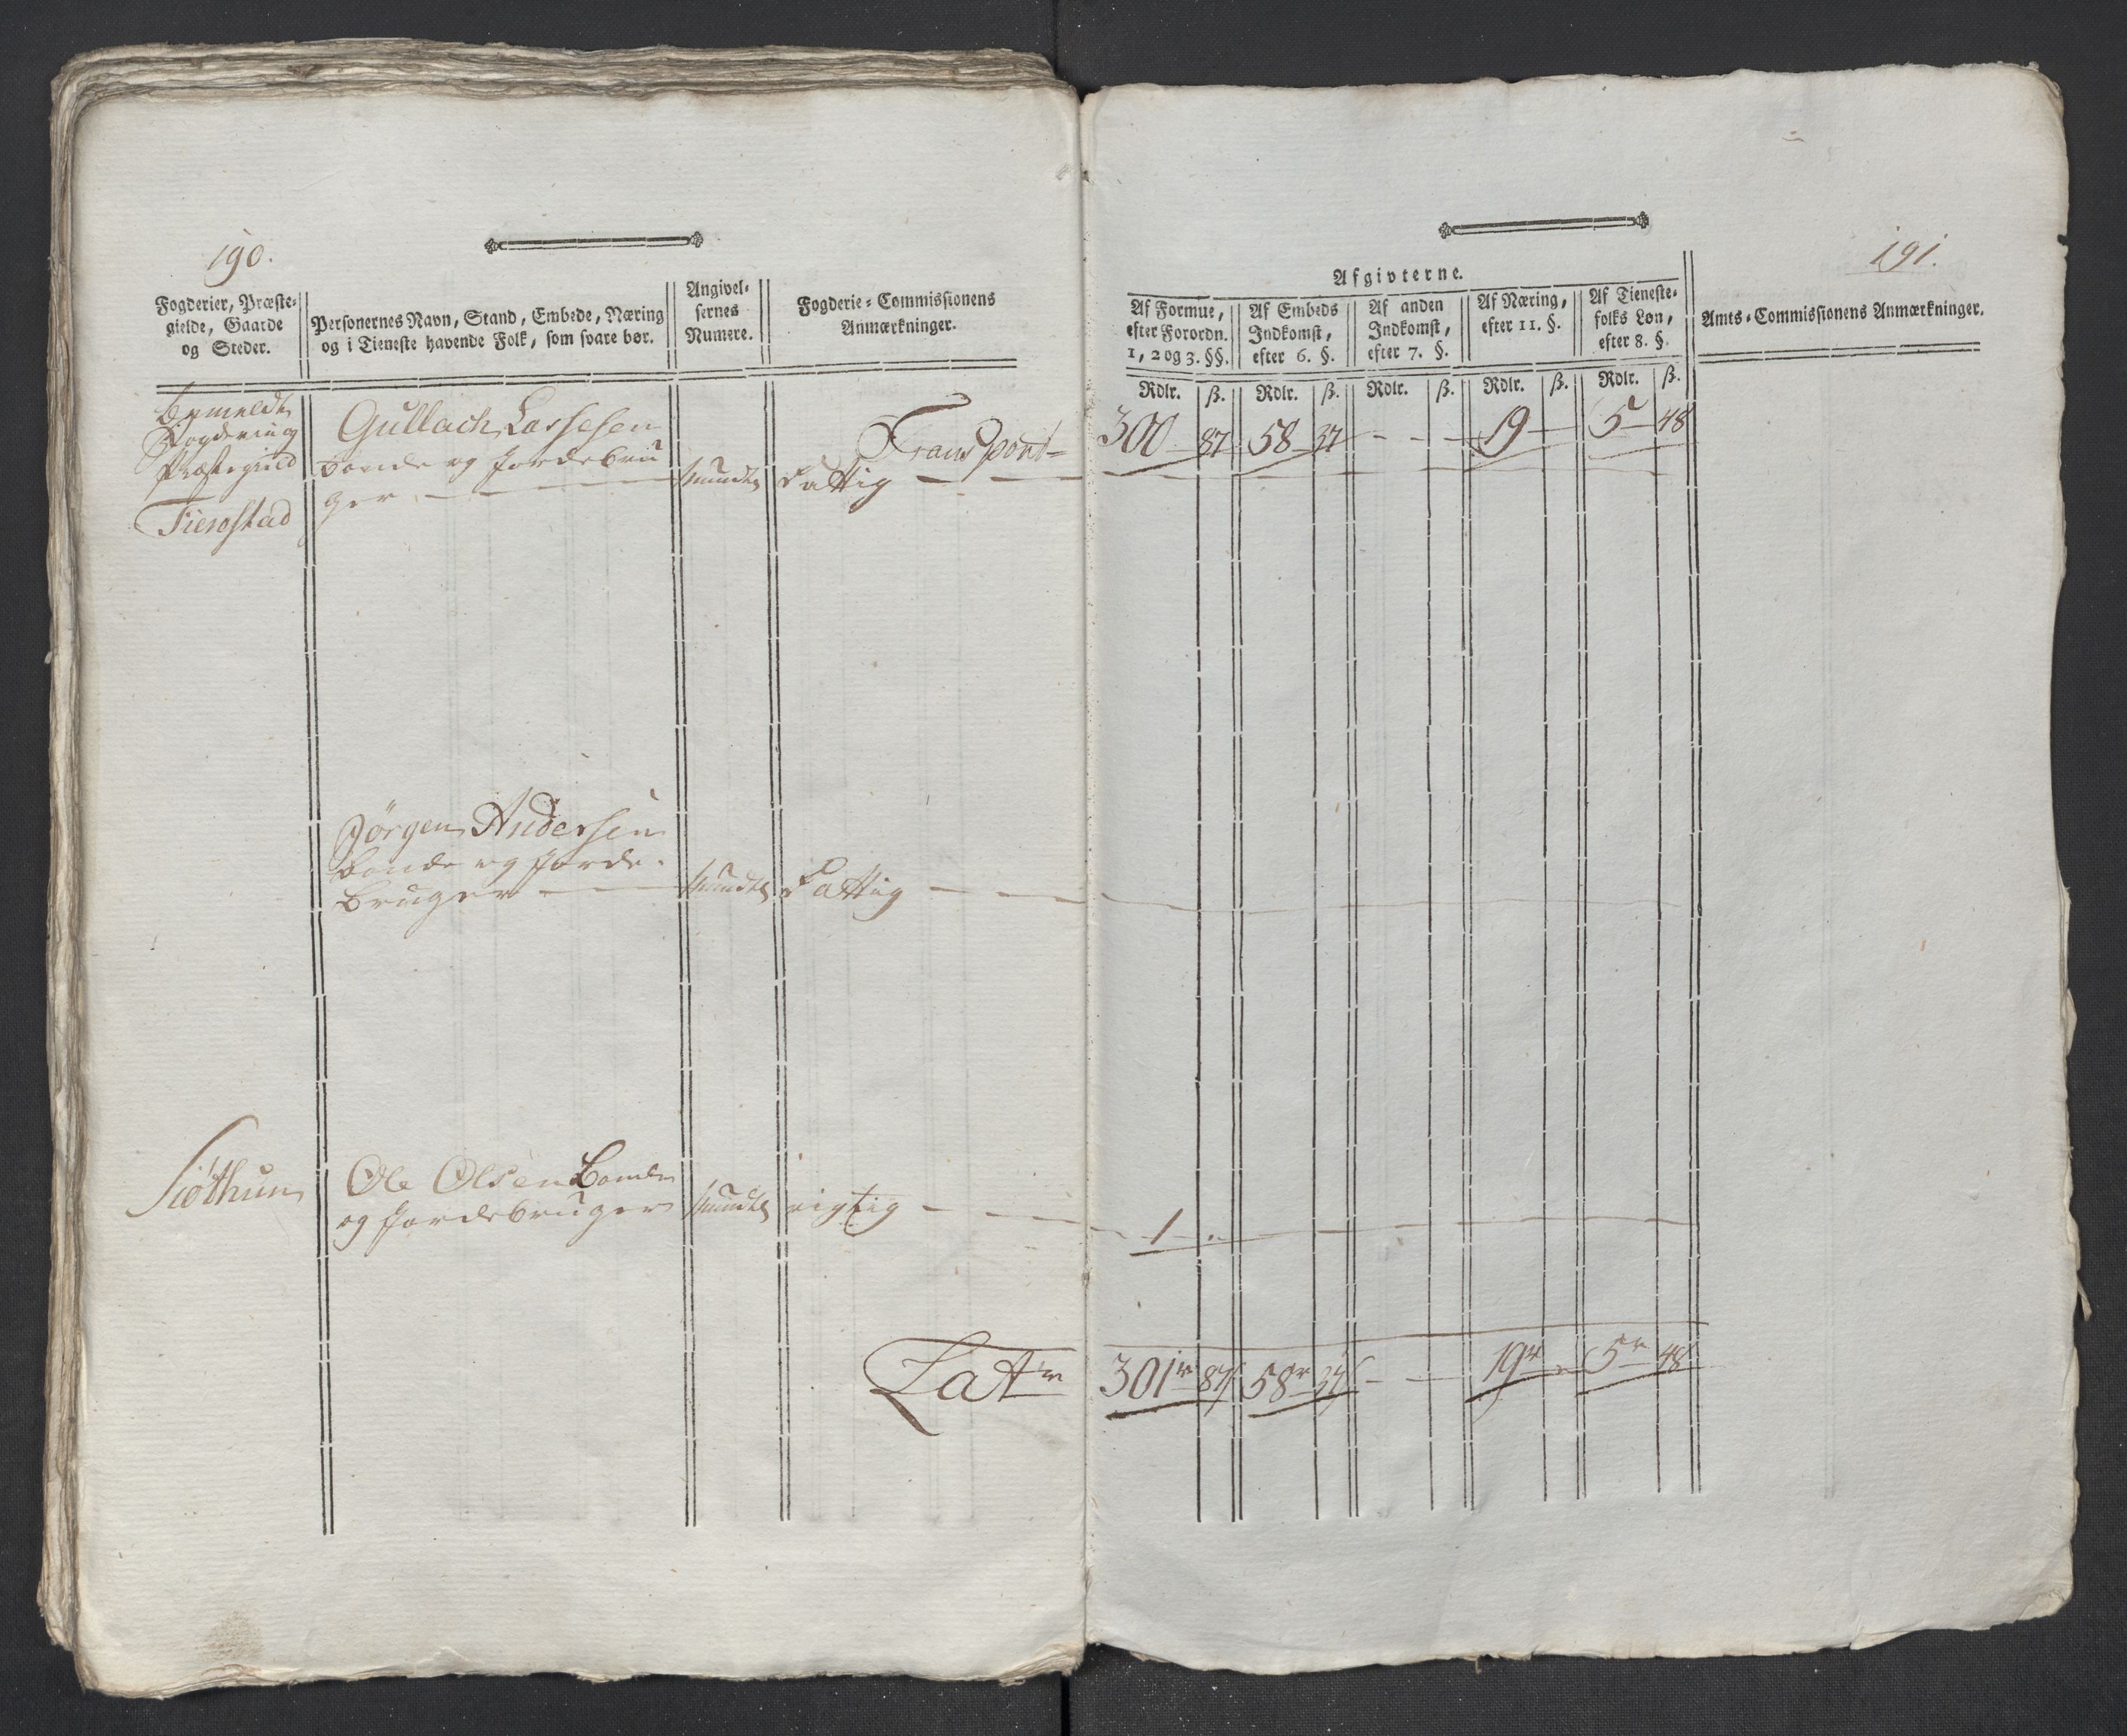 190.
Fogderier, Præste-
gielde, Gaarde
og Steder.
Personernes Navn, Stand, Embede, Næring
og i Tieneste havende Folk, som svare bør.
Angivel-
sernes
Numere.
Fogderie-Commissionens
Anmærkninger.
Bemeldte
Fogderie og
Præstegield
Fierestad
Gullach Lassesen
bonde og Jordebru
ger
Transport
Mundtl Fattig
Jörgen Andersen
bonde og Jorde-
bruger Mundtl Fattig
Siöthun
Ole Olsen Bonde
og Jordebruger Mundtl rigtig
Lat
191.
Afgivterne.
Af Formue,
efter Forordn.
1, 2 og 3. §§.
Af Embeds
Indkomst,
efter 6. §.
Af anden
Indkomst,
efter 7. §.
Af Næring,
efter 11. §.
Af Tieneste-
folks Løn,
efter 8. §.
Amts-Commissionens Anmærkninger.
Rdlr. ß. Rdlr. ß. Rdlr. ß. Rdlr. ß. Rdlr. ß.
300 87 58 37 - - 19 - 5 48
1 .
301 87 58 37 - - 19 - 5 48